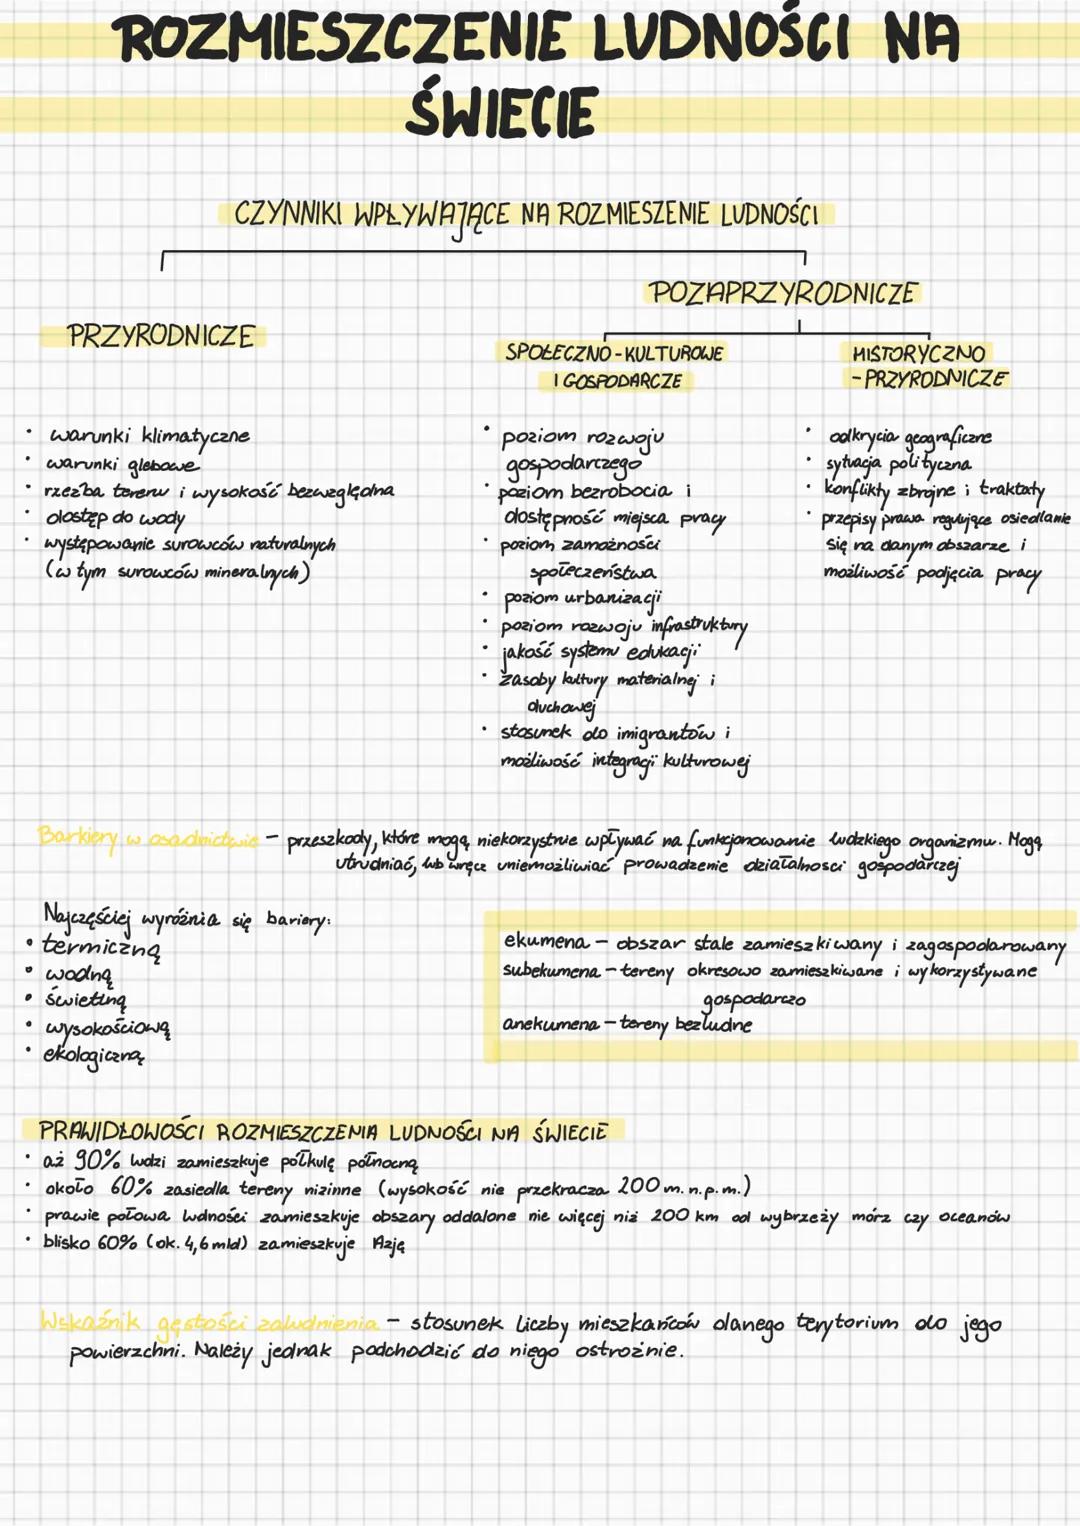 ROZMIESZCZENIE LUDNOŚCI NA
ŚWIECIE
CZYNNIKI WPŁYWAJĄCE NA ROZMIESZENIE LUDNOŚCI
POZAPRZYRODNICZE
PRZYRODNICZE
SPOŁECZNO-KULTUROWE
I GOSPODARCZE
HISTORYCZNO
-PRZYRODNICZE
· warunki klimatyczne
· warunki glebowe
· rzeźba terenu i wysokość bezwzględna
· dostęp do wody
· występowanie surowców naturalnych
(w tym surowców mineralnych)
· poziom rozwoju
gospodarczego
· poziom bezrobocia i
dostępność miejsca pracy
· poziom zamożności
społeczeństwa
· poziom urbanizacji
· poziom rozwoju infrastruktury
· jakość systemu edukacji
· zasoby kultury materialnej i
duchowej
· stosunek do imigrantów i
możliwość integracji kulturowej
· odkrycia geograficzne
· sytuacja polityczna
· konflikty zbrojne i traktaty
· przepisy prawa regulujące osiedlanie
się na danym obszarze i
możliwość podjęcia pracy
Barkiery w osadnictwie – przeszkody, które mogą niekorzystnie wpływać na funkcjonowanie ludzkiego organizmu. Mogą
utrudniać, lub wręcz uniemożliwiać prowadzenie działalnosci gospodarczej
Najczęściej wyróżnia się bariery:
• termiczną
• wodną
• świetlną
• wysokościową
• ekologiczną
ekumena – obszar stale zamieszkiwany i zagospodarowany
subekumena – tereny okresowo zamieszkiwane i wykorzystywane
gospodarczo
anekumena – tereny bezludne
PRAWIDŁOWOŚCI ROZMIESZCZENIA LUDNOŚCI NA ŚWIECIE
· aż 90% ludzi zamieszkuje półkulę północną
· około 60% zasiedla tereny nizinne (wysokość nie przekracza 200 m. n. p. m.)
· prawie połowa ludności zamieszkuje obszary oddalone nie więcej niż 200 km od wybrzeży mórz czy oceanów
· blisko 60% (ok. 4,6 mld) zamieszkuje Azję
Wskaźnik gęstości zaludnienia – stosunek liczby mieszkańców danego terytorium do jego
powierzchni. Należy jednak podchodzić do niego ostrożnie.